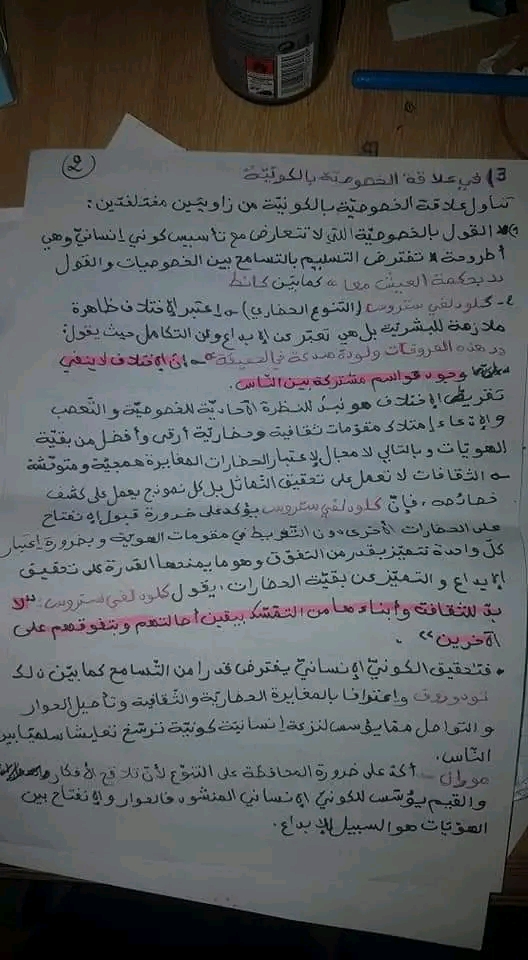 2
3) في علاقة الخصوصية بالكونية
تناول علاقة الخصوصية بالكونية من زاويتين مختلفتين:
القول بالخصوصية التي لا تتعارض مع تأسيس كوني إنساني وهي
أطروحة تفترض التسليم بالتسامح بين الخصوصيات والقول
بحكمة العيش معا كما بين كانط
- كلود لفي ستروس (التنوع الحضاري) → اعتبر الاختلاف ظاهرة
ملازمة للبشرية بل هي تعبر عن الإبداع وعن التكامل حيث يقول:
"هذه الفروقات ولودة مبدعة في الحقيقة" → إن الاختلاف لا ينفي
وجود قواسم مشتركة بين الناس.
تقريظ الاختلاف هو نبذ للنظرة الأحادية للخصوصية والتعصب
والإدعاء امتلاك مقومات ثقافية وحضارية أرقى وأفضل من بقية
الهويات وبالتالي لا مجال لاعتبار الحضارات المغايرة همجية ومتوحشة
→ الثقافات لا تعمل على تحقيق التماثل بل كل نموذج يعمل على كشف
خصائصه، فإن كلود لفي ستروس يؤكد على ضرورة قبول الانفتاح
على الحضارات الأخرى دون التفريط في مقومات الهوية وبضرورة اعتبار
كل واحدة تتميز بقدر من التفوق وهو ما يمنحها القدرة على تحقيق
الإبداع والتميز عن بقية الحضارات. يقول كلود لفي ستروس: "لا
بد للثقافة وأبناءها من التمسك بيقين أصالتهم وبتفوقهم على
الآخرين".
• فتحقيق الكوني الإنساني يفترض قدرا من التسامح كما بين ذلك
تودوروف واعترافا بالمغايرة الحضارية والثقافية وتأصيل الحوار
والتواصل مما يؤسس لنزعة إنسانية كونية ترسخ تعايشا سلميا بين
الناس.
موران → أكد على ضرورة المحافظة على التنوع لأن تلاقح الأفكار
والقيم يؤسس للكوني الإنساني المنشود فالحوار والانفتاح بين
الهويات هو السبيل للإبداع.